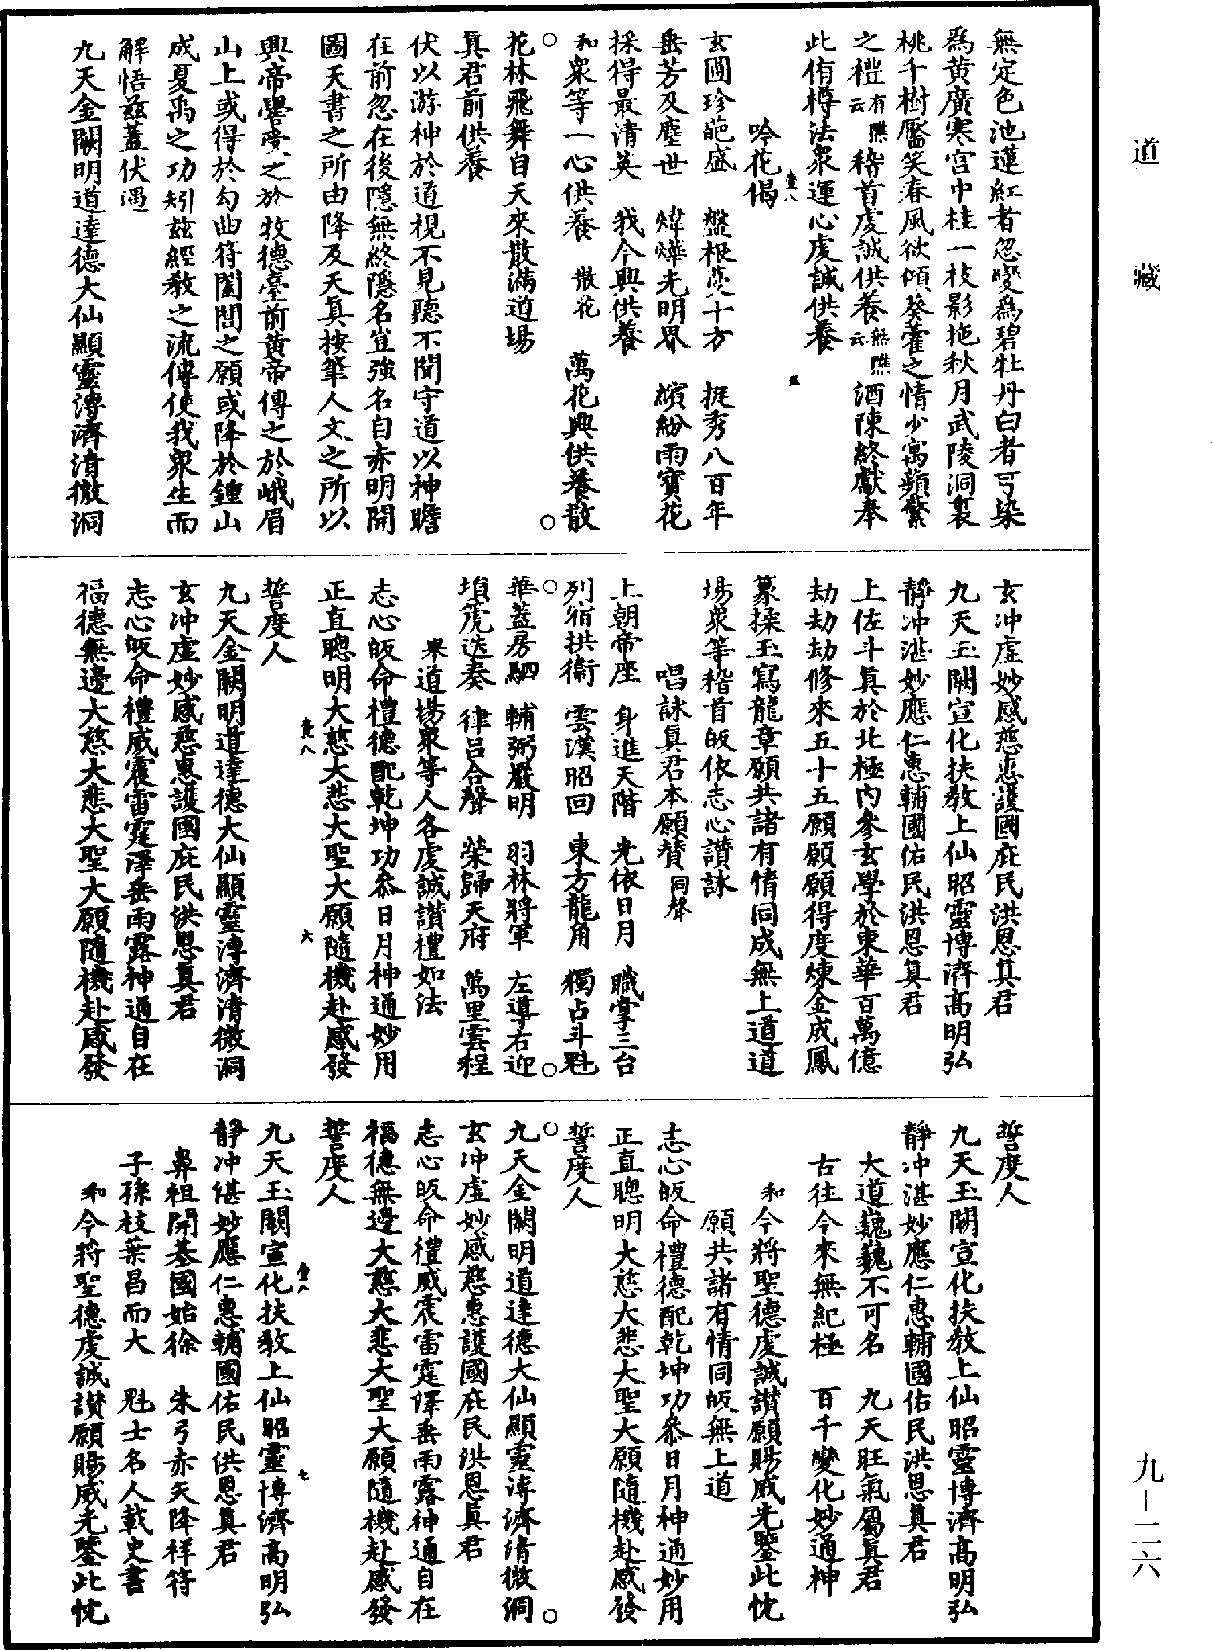 無定色池蓮紅者忽變爲碧牡丹白者可染
爲黃廣寒宮中桂一枝影拖秋月武陵洞裏
桃千樹靨笑春風欲傾葵藿之情少寓蘋蘩
之禮有醮云稽首虔誠供養無醮云酒陳終獻奉
此侑樽法衆運心虔誠供養
吟花偈
玄圃珍葩盛 盤根莫十方 挺秀八百年
垂芳及塵世 煒燁光明界 繽紛雨寶花
採得最清英 我今興供養
和衆等一心供養 散花 萬花興供養散
花林飛舞自天來散滿道場
真君前供養
伏以游神於道視不見聽不聞守道以神瞻
在前忽在後隱無終隱名豈強名自赤明開
圖天書之所由降及天真按筆人文之所以
興帝嚳受之於牧德臺前黃帝傳之於峨眉
山上或得於勾曲符闔閭之願或降於鍾山
成夏禹之功矧茲經教之流傳使我衆生而
解悟茲蓋伏遇
九天金闕明道達德大仙顯靈溥濟清微洞
玄冲虛妙感慈惠護國庇民洪恩真君
九天玉闕宣化扶教上仙昭靈博濟高明弘
靜冲湛妙應仁惠輔國佑民洪恩真君
上佐斗真於北極內參玄學於東華百萬億
劫劫劫修來五十五願願願得度煉金成鳳
篆揉玉寫龍章願共諸有情同成無上道道
場衆等稽首皈依志心讚詠
唱詠真君本願贊同聲
上朝帝座 身進天階 光依日月 職掌三台
列宿拱衛 雲漢昭回 東方龍角 獨占斗魁
華蓋房駟 輔弼嚴明 羽林將軍 左導右迎
塤箎迭奏 律呂合聲 榮歸天府 萬里雲程
舉道場衆等人各虔誠讚禮如法
志心皈命禮德配乾坤功叅日月神通妙用
正直聰明大慈大悲大聖大願隨機赴感發
誓度人
九天金闕明道達德大仙顯靈溥濟清微洞
玄冲虛妙感慈惠護國庇民洪恩真君
志心皈命禮威震雷霆澤垂雨露神通自在
福德無邊大慈大悲大聖大願隨機赴感發
誓度人
九天玉闕宣化扶教上仙昭靈博濟高明弘
靜冲湛妙應仁惠輔國佑民洪恩真君
大道巍巍不可名 九天旺氣屬真君
古往今來無紀極 百千變化妙通神
和今將聖德虔誠讚願賜威光鑒此忱
願共諸有情同皈無上道
志心皈命禮德配乾坤功叅日月神通妙用
正直聰明大慈大悲大聖大願隨機赴感發
誓度人
九天金闕明道達德大仙顯靈溥濟清微洞
玄冲虛妙感慈惠護國庇民洪恩真君
志心皈命禮威震雷霆澤垂雨露神通自在
福德無邊大慈大悲大聖大願隨機赴感發
誓度人
九天玉闕宣化扶教上仙昭靈博濟高明弘
靜冲湛妙應仁惠輔國佑民洪恩真君
鼻祖開基國始徐 朱弓赤矢降祥符
子孫枝葉昌而大 魁士名人載史書
和今將聖德虔誠讚願賜威光鑒此忱
道藏
九－二六